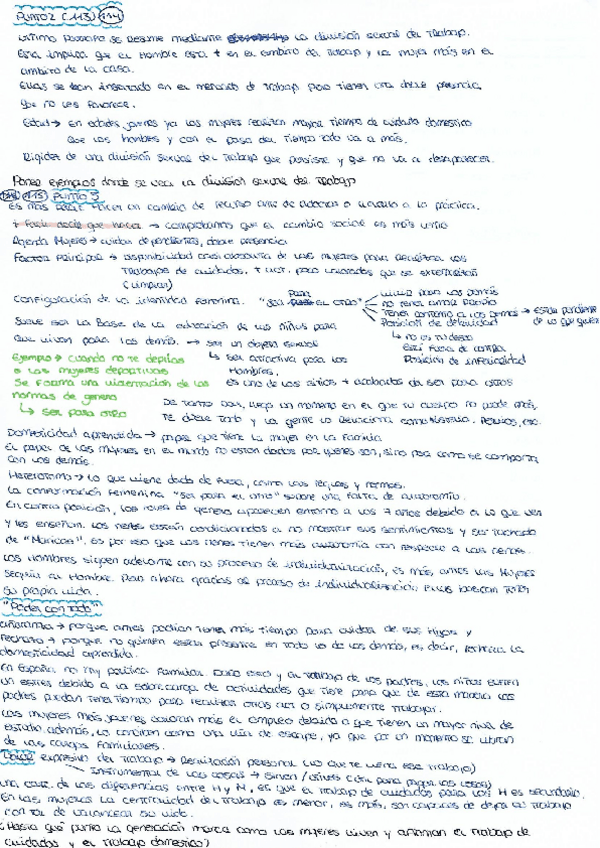 PUNTO 2 (113) 114
último párrafo se resume mediante la división sexual del trabajo.
Esta implica que el hombre está + en el ámbito del trabajo y la mujer más en el
ámbito de la casa.
Ellas se han insertado en el mercado de trabajo pero tienen una doble presencia,
que no les favorece.
Edad → en edades jóvenes ya las mujeres realizan mayor tiempo de cuidado doméstico
que los hombres y con el paso del tiempo todo va a más.
Rigidez de una división sexual del trabajo que persiste y que no va a desaparecer.
Poner ejemplos donde se vea la división sexual del trabajo
115 PUNTO 3
Es más fácil hacer un cambio de
+ fácil decir que hacer → comprobamos que el cambio social es más
Agenda Mujeres → cuidar dependientes, doble presencia
Factor Principal → disponibilidad de las mujeres para realizar los
trabajos de cuidados. + act. para que se externalizan
(limpiar)
Configuración de la identidad femenina. "ser para EL otro"
vivir para los demás
no tener amor propio
Tener contento a los demás → estar pendiente
de lo que quieren
Posición de
→ no es tu deseo
está fuera de control
Posición de inferioridad
Suele ser la base de la educación de las niñas para
que vivan para los demás. → ser un objeto sexual
↳ ser atractiva para los
hombres.
Ejemplo → cuando no te depilas
o las mujeres deportivas
Se forma una de las
normas de género
↳ ser para otro
es uno de los sitios + acabados de ser para otros
De tanto dar, llega un momento en el que tu cuerpo no puede más,
te duele todo y la gente lo
Domesticidad aprendida → papel que tiene la mujer en la familia
El papel de las mujeres en el mundo no están dados por quienes son, sino por como se comporta
con los demás.
→ lo que viene dado de fuera, como las leyes y normas.
La conformación femenina "ser para el otro" supone una falta de autonomía.
En contraposición, los roles de género aparecen entorno a los 7 años debido a lo que ven
y les enseñan. Los nenes están condicionados a no mostrar sus sentimientos y ser tachado
de "Maricas", es por eso que los nenes tienen más autonomía con respecto a las nenas.
Los hombres siguen adelante con su proceso de individualización, es más, antes las mujeres
seguían al hombre. Pero ahora gracias al proceso de individualización ellas
su propia vida.
"Poder con todo"
añoranza → porque antes podían tener más tiempo para cuidar de sus hijos y
rechazo → porque no quieren estar presente en todo lo de los demás, es decir, rechaza la
domesticidad aprendida.
En España no hay política familiar. Dado esto y al trabajo de los padres, los niños sufren
un estrés debido a la sobrecarga de actividades que tiene para que de esta manera los
padres puedan tener tiempo para realizar otras act o simplemente trabajar.
Las mujeres más jóvenes valoran más el empleo debido a que tienen un mayor nivel de
estudio, además, lo conciben como una vía de escape, ya que por un momento se libran
de las cargas familiares.
expresivo del trabajo → Realización personal (lo que te llena ese trabajo)
Instrumental de las cosas → sirven / útiles
una de las diferencias entre H y M, es que el trabajo de cuidados para los H es secundario.
En las mujeres la centralidad del trabajo es menor, es más, son capaces de dejar el trabajo
con tal de su vida.
¿Hasta qué punto la generación marca como las mujeres viven y afrontan el trabajo de
cuidados y el trabajo doméstico?